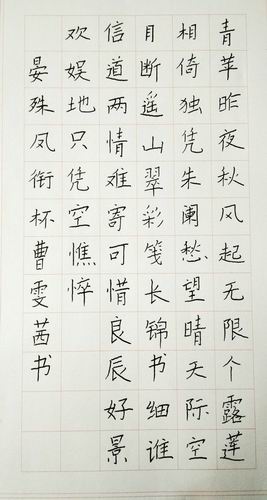 青苹昨夜秋风起无限个露莲
相倚独凭朱阑愁望晴天际空
目断遥山翠彩笺长锦书细谁
信道两情难寄可惜良辰好景
欢娱地只凭空憔悴
晏殊凤衔杯曹雯茜书